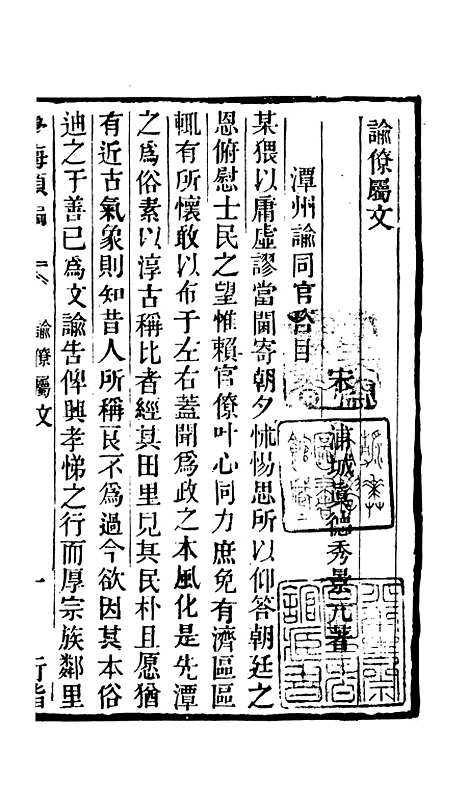 諭僚屬文
宋 浦城眞德秀景元著
潭州諭同官咨目
某猥以庸虛謬當閫寄朝夕怵惕思所以仰答朝廷之
恩俯慰士民之望惟賴官僚叶心同力庶免有濟區區
輒有所懷敢以布于左右蓋聞爲政之本風化是先潭
之爲俗素以淳古稱比者經其田里見其民朴且愿猶
有近古氣象則知昔人所稱良不爲過今欲因其本俗
迪之于善已爲文諭告俾興孝悌之行而厚宗族鄰里
學海類編 諭僚屬文 一